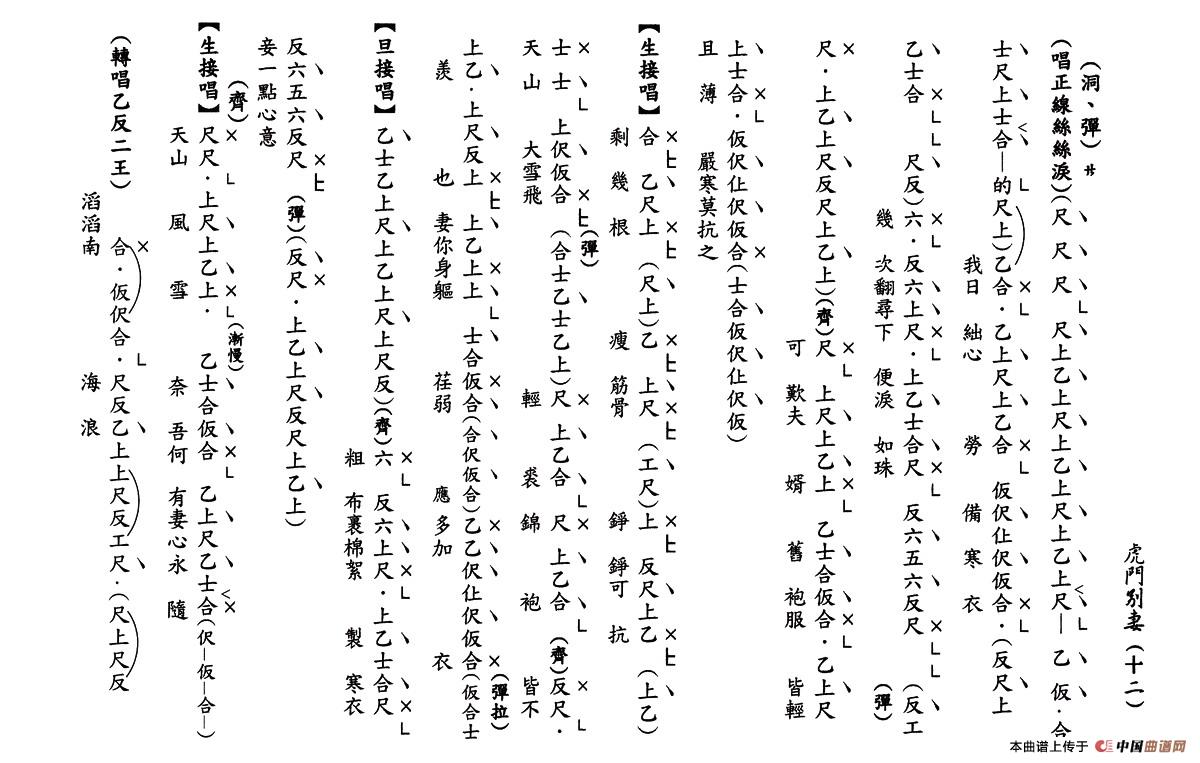 虎門別妻（十二）
（洞、彈）サ
（唱正線絲絲淚）（尺 尺 尺 尺上乙上尺上乙上尺上乙上尺— 乙 仮．合
士尺上士合—的尺上）乙合．乙上尺上乙合 仮伬仩伬仮合．（反尺上
我日 絀心 勞 備 寒 衣
乙士合 尺反）六．反六上尺．上乙士合尺 反六五六反尺 （反工
（彈）
幾 次翻尋下 便淚 如珠
尺．上乙上尺反尺上乙上）（齊）尺 上尺上乙上 乙士合仮合．乙上尺
可 歎夫 婿 舊 袍服 皆輕
上士合．仮伬仩伬仮合（士合仮伬仩伬仮）
且 薄 嚴寒莫抗之
【生接唱】合 乙尺上 （尺上）乙 上尺 （工尺）上 反尺上乙 （上乙）
剩 幾 根 瘦 筋骨 錚 錚可 抗
士士 上伬仮合 （彈）（合士乙士乙上）尺 上乙合 尺 上乙合 （齊）反尺．
天 山 大雪飛 輕 裘 錦 袍 皆不
上乙．上尺反上 上乙上上 士合仮合（合伬仮合）乙乙伬仩伬仮合（彈拉）（仮合士
羨 也 妻你身軀 荏弱 應 多加 衣
【旦接唱】乙士乙上尺上乙上尺上尺反）（齊）六 反六上尺．上乙士合尺
粗 布裹棉絮 製 寒衣
反六五六反尺 （彈）（反尺．上乙上尺反尺上乙上）
妾一點心意
【生接唱】（齊）尺尺．上尺上乙上． （漸慢）乙士合仮合 乙上尺乙士合（伬—仮—合—）
天山 風 雪 奈 吾何 有妻心永 隨
（轉唱乙反二王） 合．仮伬合．尺反乙上上尺反工尺．（尺上尺反
滔滔南 海 浪
本曲谱上传于 中国曲谱网